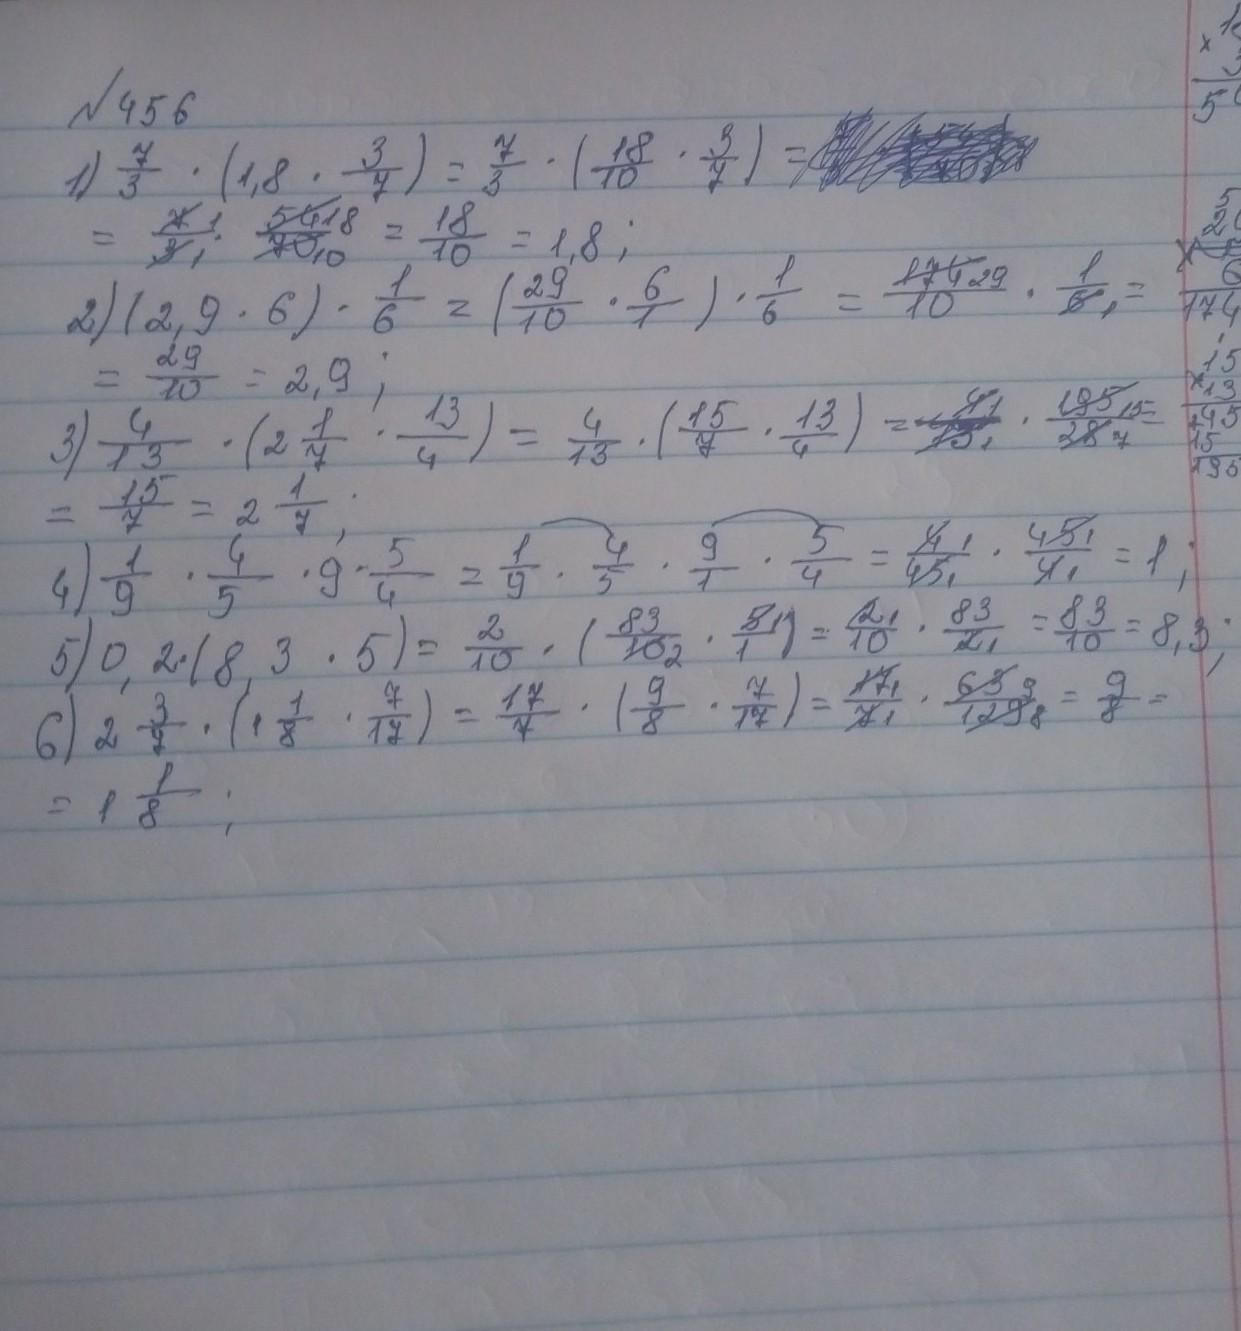 №456
1) 7/3 · (1,8 · 3/7) = 7/3 · (18/10 · 3/7) =
= 7 1/3 1 · 54 18/70 10 = 18/10 = 1,8;
2) (2,9 · 6) · 1/6 = (29/10 · 6/1) · 1/6 = 174 29/10 · 1/6 1 =
= 29/10 = 2,9;
3) 4/13 · (2 1/7 · 13/4) = 4/13 · (15/7 · 13/4) = 4 1/13 1 · 195 15/28 7 =
= 15/7 = 2 1/7;
4) 1/9 · 4/5 · 9 · 5/4 = 1/9 · 4/5 · 9/1 · 5/4 = 4 1/45 1 · 45 1/4 1 = 1;
5) 0,2 · (8,3 · 5) = 2/10 · (83/10 2 · 5 1/1) = 2 1/10 · 83/2 1 = 83/10 = 8,3;
6) 2 3/7 · (1 1/8 · 7/17) = 17/7 · (9/8 · 7/17) = 17 1/7 1 · 63 9/129 8 = 9/8 =
= 1 1/8;
× 6
174
15
× 13
+45
15
195